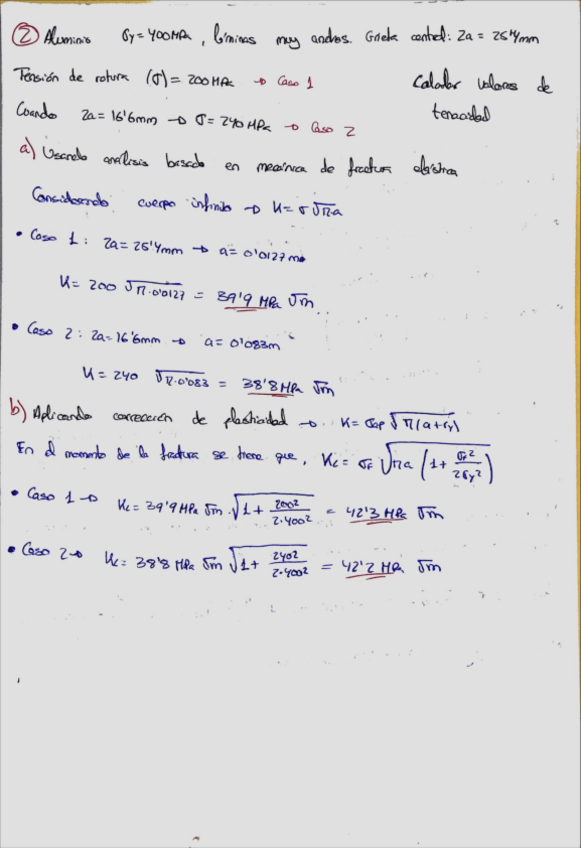 ② Aluminio σy = 400 MPa, láminas muy anchas. Grieta central: 2a = 25'4mm
Tensión de rotura (σ) = 200 MPa → Caso 1 Calcular valores de
Cuando 2a = 16'6mm → σ = 240 MPa → Caso 2 tenacidad
a) Usando análisis basado en mecánica de fractura elástica
Considerando cuerpo infinito → K = σ√πa
• Caso 1: 2a = 25'4mm → a = 0'0127m
K = 200 √π·0'0127 = 39'9 MPa √m
• Caso 2: 2a = 16'6mm → a = 0'083m
K = 240 √π·0'083 = 38'8 MPa √m
b) Aplicando corrección de plasticidad → K = σap √π(a+ry)
En el momento de la fractura se tiene que, Kc = σF √πa (1 + σF²/2σy²)
• Caso 1 → Kc = 39'9 MPa √m · √1 + 200²/2·400² = 42'3 MPa √m
• Caso 2 → Kc = 38'8 MPa √m √1 + 240²/2·400² = 42'2 MPa √m